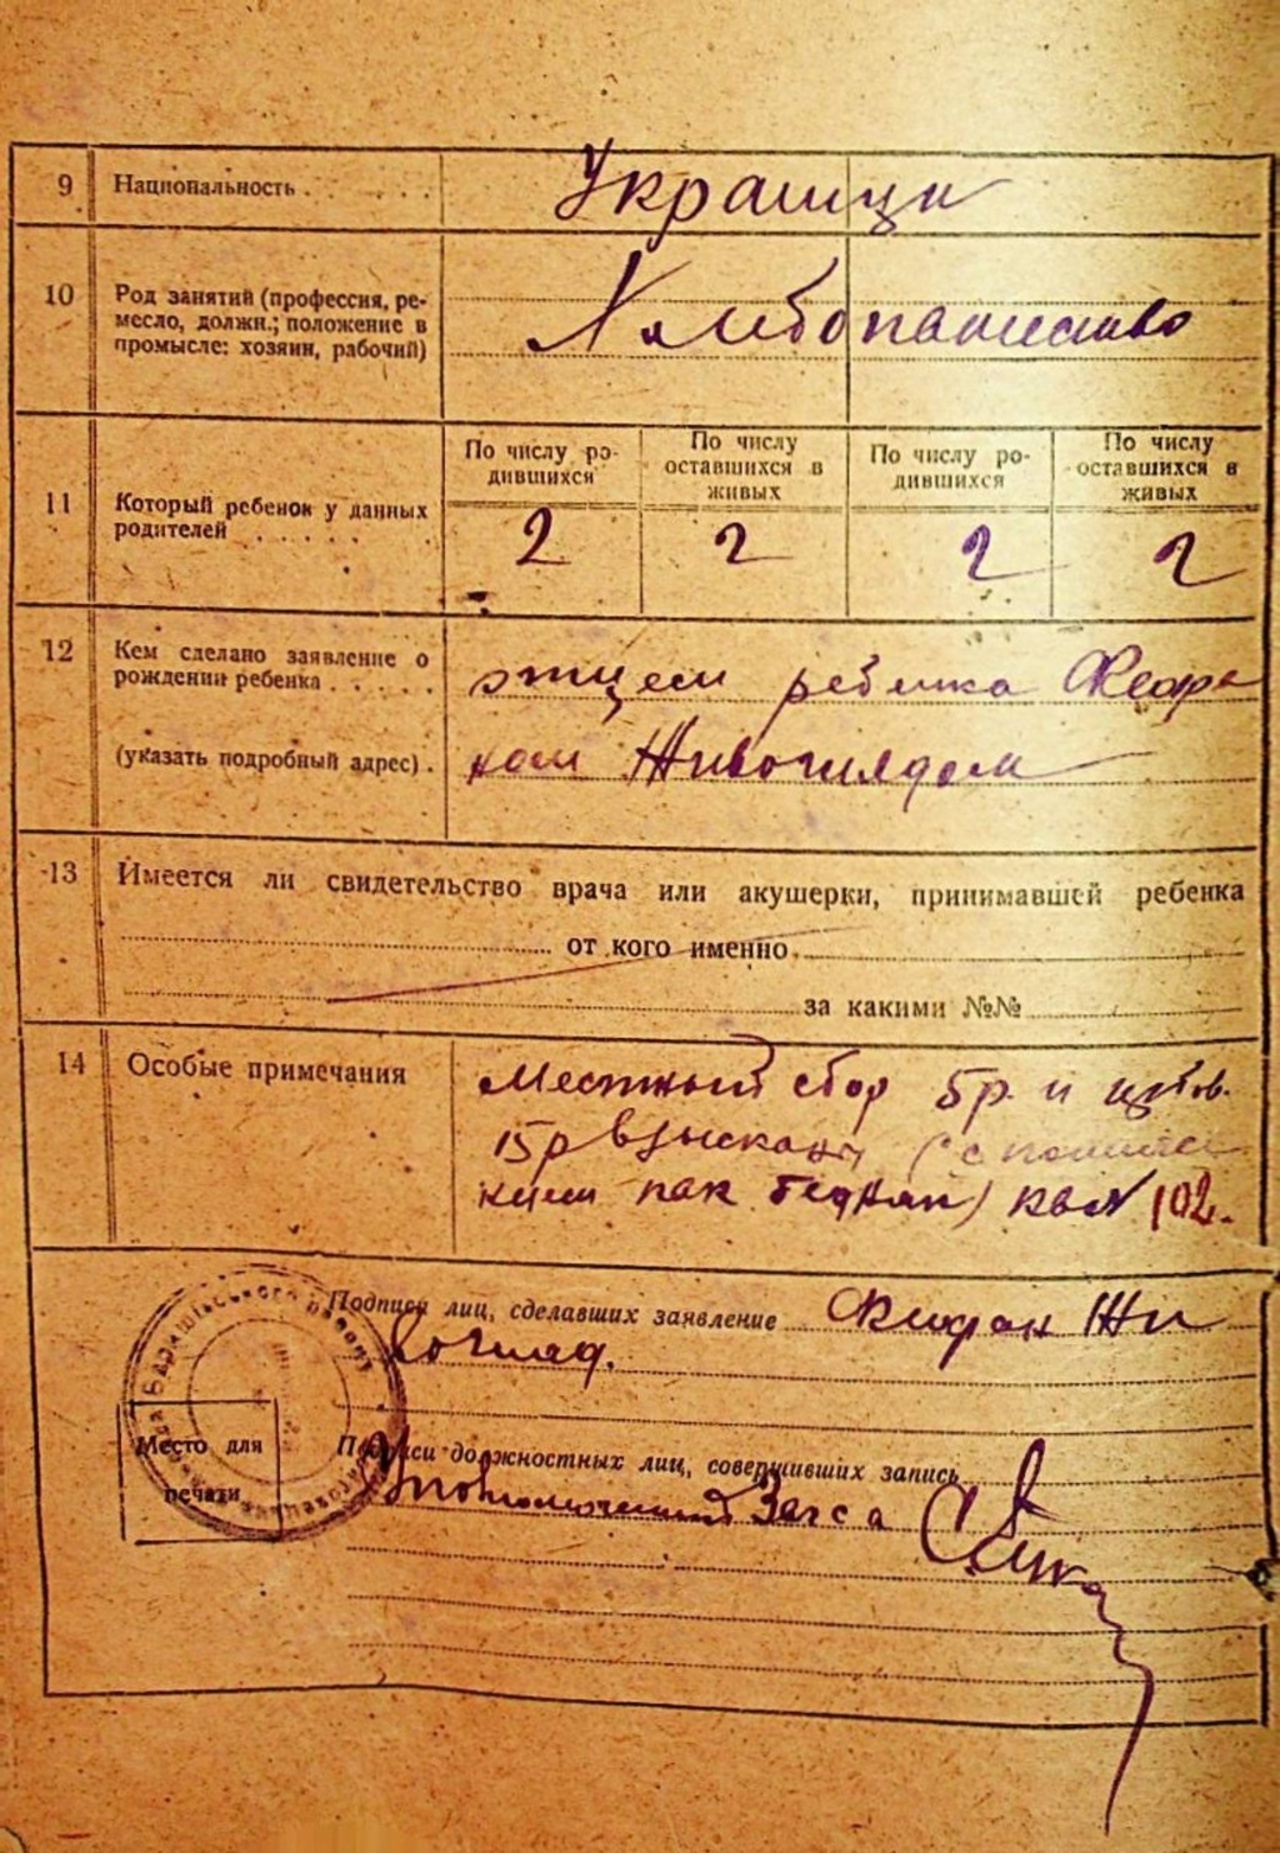 9 Национальность . . . . . Украинци
10 Род занятий (профессия, ре-
месло, должн.; положение в
промысле: хозяин, рабочий)
Хлибопашество
По числу ро-
дившихся
По числу
оставшихся в
живых
По числу ро-
дившихся
По числу
оставшихся в
живых
11 Который ребенок у данных
родителей . . . . .
2 2 2 2
12 Кем сделано заявление о
рождении ребенка . . . . .
(указать подробный адрес) .
отцем ребенка
Живогилядом
13 Имеется ли свидетельство врача или акушерки, принимавшей ребенка
от кого именно
за какими №№
14 Особые примечания
Местный сбор 5р. и
15р взыскан
как бедняк) кв № 102.
Подписи лиц, сделавших заявление Жи
вогиляд.
Подписи должностных лиц, совершивших запись
Уполномоченный Загса
Место для
печати